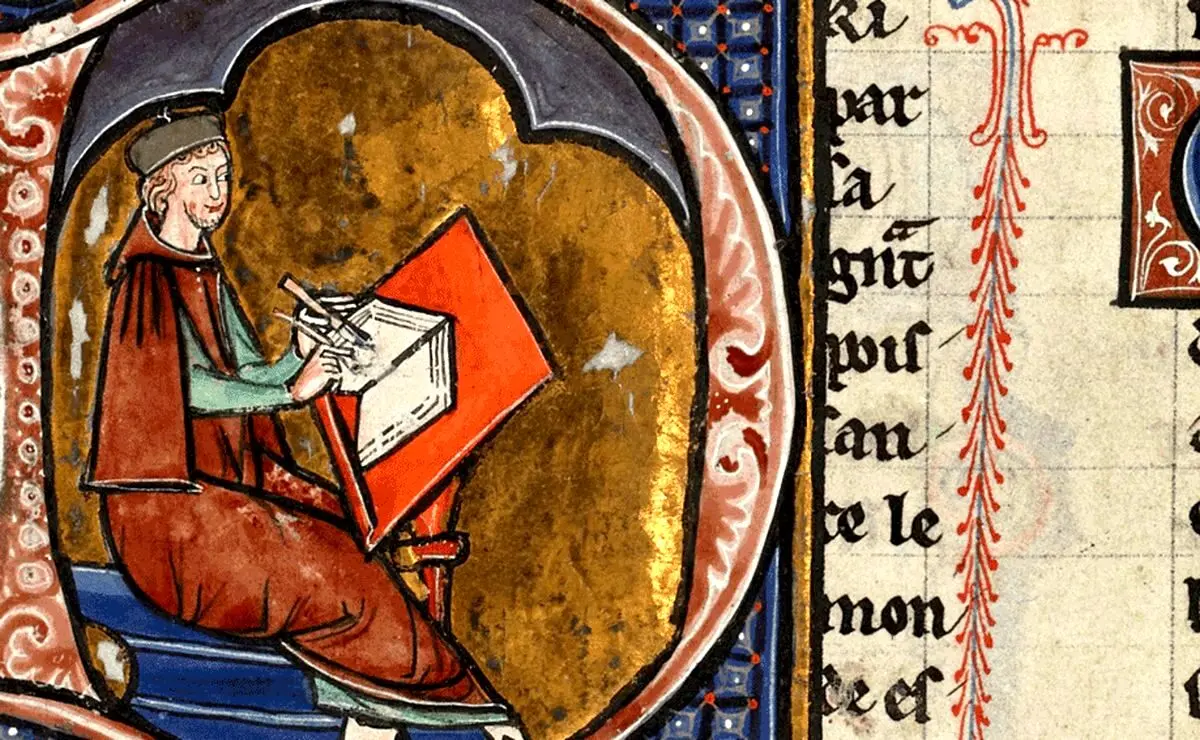 ri
par
sa
gnt̄
pois
san
ce le
mon
de es